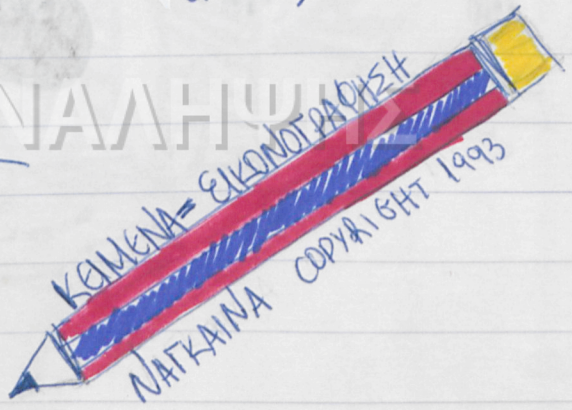 ΝΑΛΗΨΗΣ
ΚΕΙΜΕΝΑ = ΕΙΚΟΝΟΓΡΑΦΗΣΗ
ΝΑΓΚΑΙΝΑ COPYRIGHT 1993